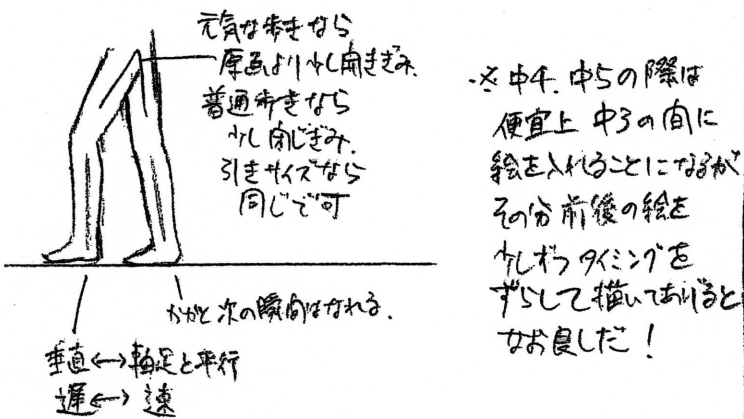 元気な歩きなら
原画より少し開きぎみ.
普通歩きなら
少し閉じぎみ.
引きサイズなら
同じで可
かかと次の瞬間はなれる.
垂直←→軸足と平行
遅←→速
※中4.中5の際は
便宜上 中3の間に
絵を入れることになるが
その分前後の絵を
少しずつタイミングを
ずらして描いてあげると
なお良しだ!